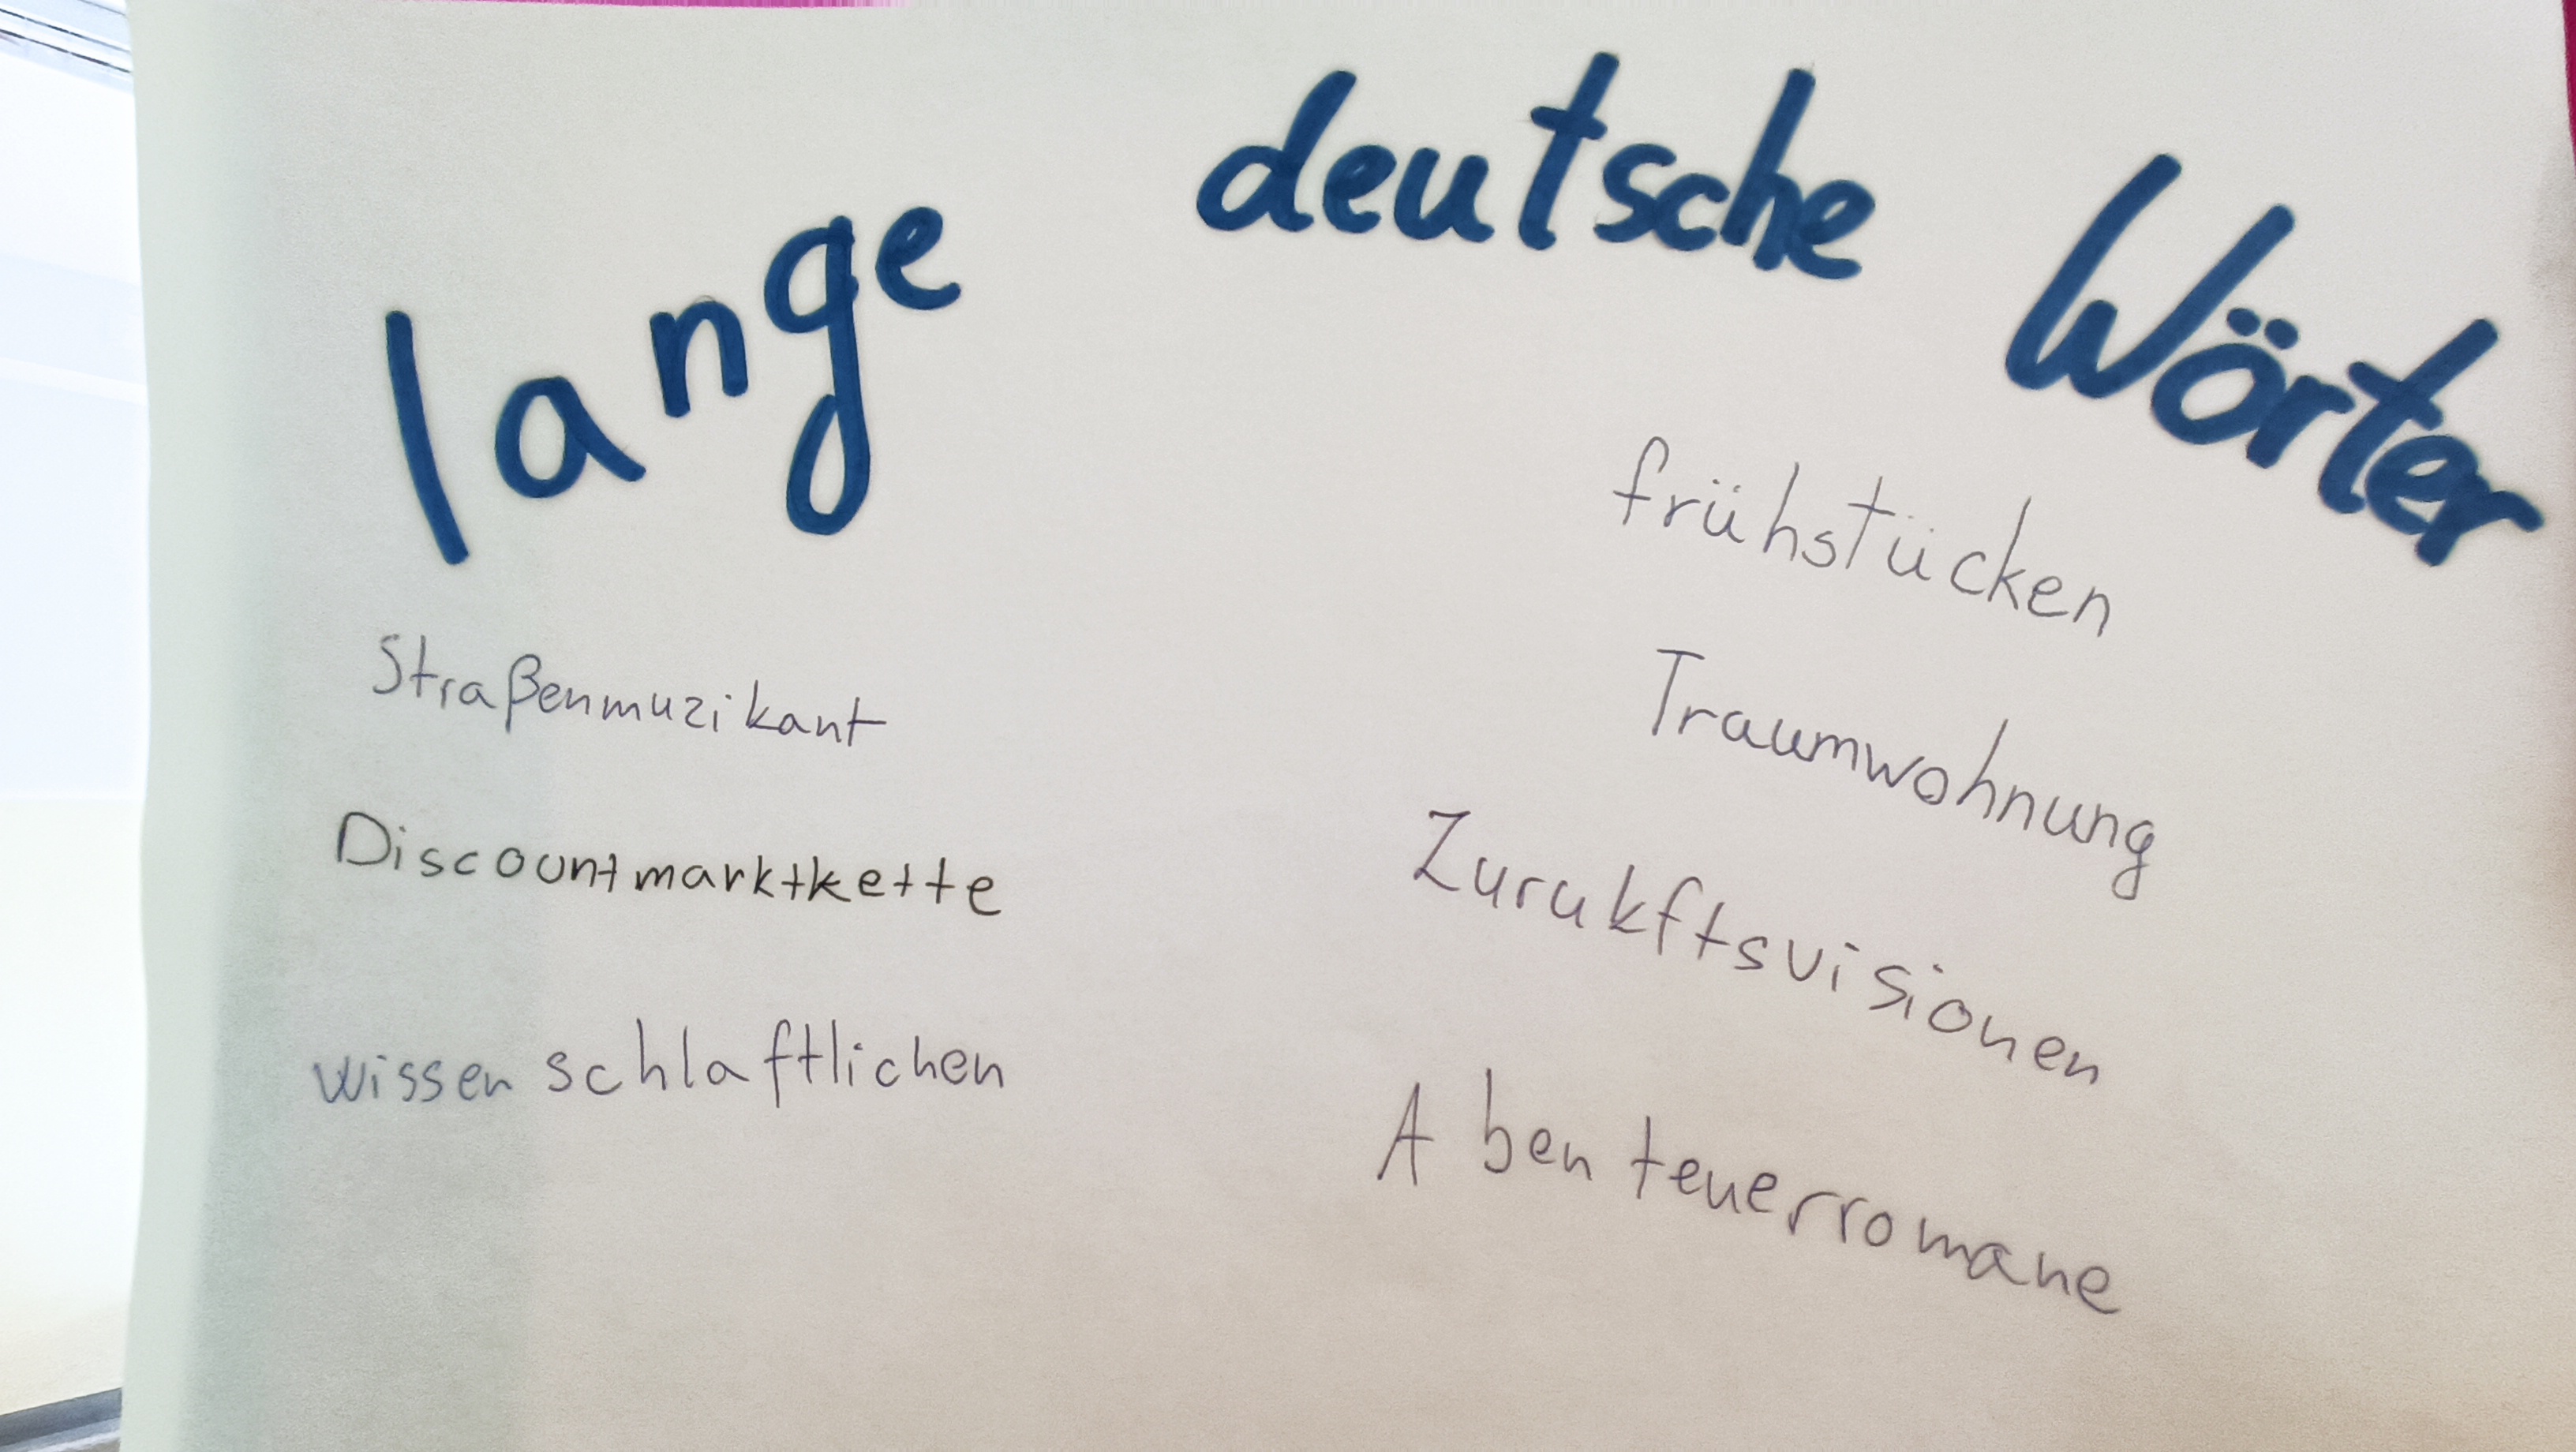 lange deutsche Wörter
Straßenmuzikant
Discountmarktkette
wissenschlaftlichen
frühstücken
Traumwohnung
Zurukftsvisionen
Abenteuerromane